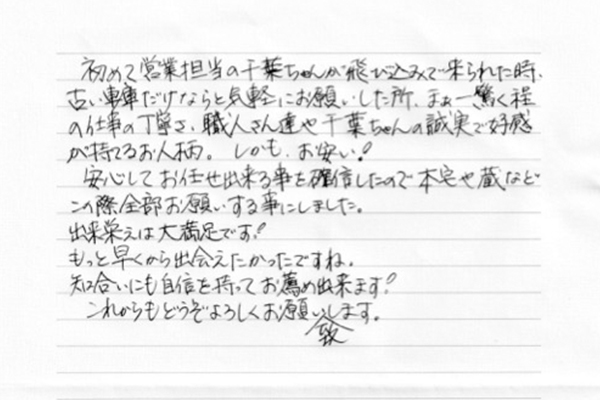 初めて営業担当の千葉ちゃんが飛び込みで来られた時、
古い車庫だけならと気軽にお願いした所、まぁー驚く程
の仕事の丁寧さ、職人さん達や千葉ちゃんの誠実で好感
が持てるお人柄。しかも、お安い!
安心してお任せ出来る事を確信したので本宅や蔵など
この際全部お願いする事にしました。
出来栄えは大満足です!
もっと早くから出会えたかったですね。
知合いにも自信を持ってお薦め出来ます!
これからもどうぞよろしくお願いします。
致